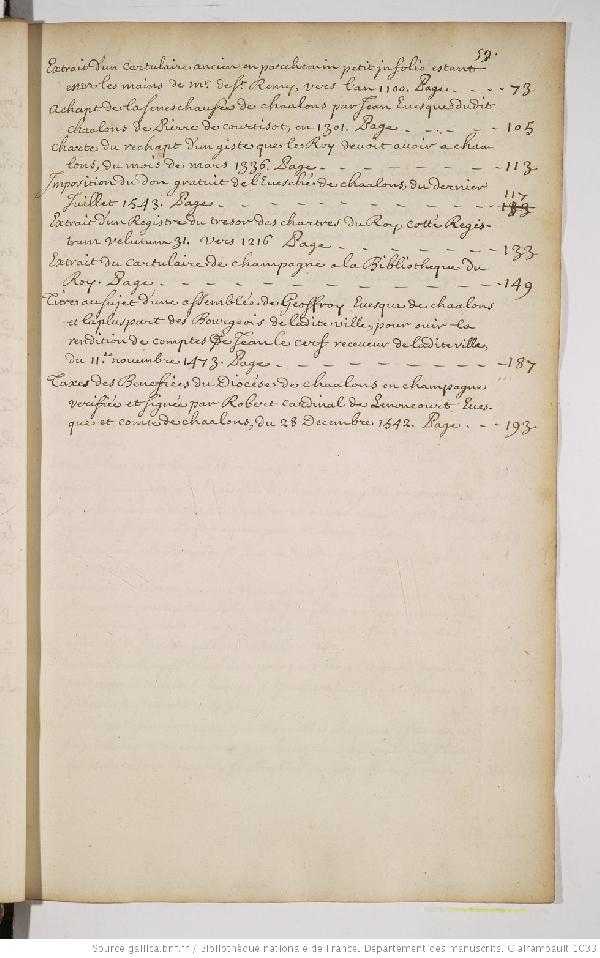 59.
Extrait d'un cartulaire ancien en parchemin petit in folio estant
entre les mains de mr. de St. Remy, vers l'an 1100. Page. - - - 73
Achapt de la seneschaussée de chaalons par Jean Euesque dudit
chaalons de Pierre de courtisot, en 1301. Page - - - - - 105
Charte du rechapt d'un giste que le Roy deuoit auoir a chaa
lons, du mois de mars 1336. Page - - - - - - 113
Imposition du don gratuit de l'Euesché de chaalons, du dernier
Juillet 1543. Page - - - - - - - 117
Extrait d'un Registre du tresor des chartres du Roy cotté Regis-
trum velutum 31. vers 1216 Page - - - - - 133
Extrait du cartulaire de champagne a la Bibliotheque du
Roy. Page - - - - - - - - 149
Titre au sujet d'une assemblée de Geoffroy Euesque de chaalons
et la pluspart des Bourgeois de ladite ville, pour ouir la
reddition de comptes de Jean le cerf receueur de ladite ville,
du 11.e nouembre 1473. Page - - - - - - 187
Taxes des Benefices du Diocése de chaalons en champagne
verifiée et signée par Robert cardinal de Lenoncourt Eues-
que et comte de chaalons, du 28 Decembre 1542. Page - - - 193
Source gallica.bnf.fr / Bibliothèque nationale de France. Département des manuscrits. Clairambault 1033